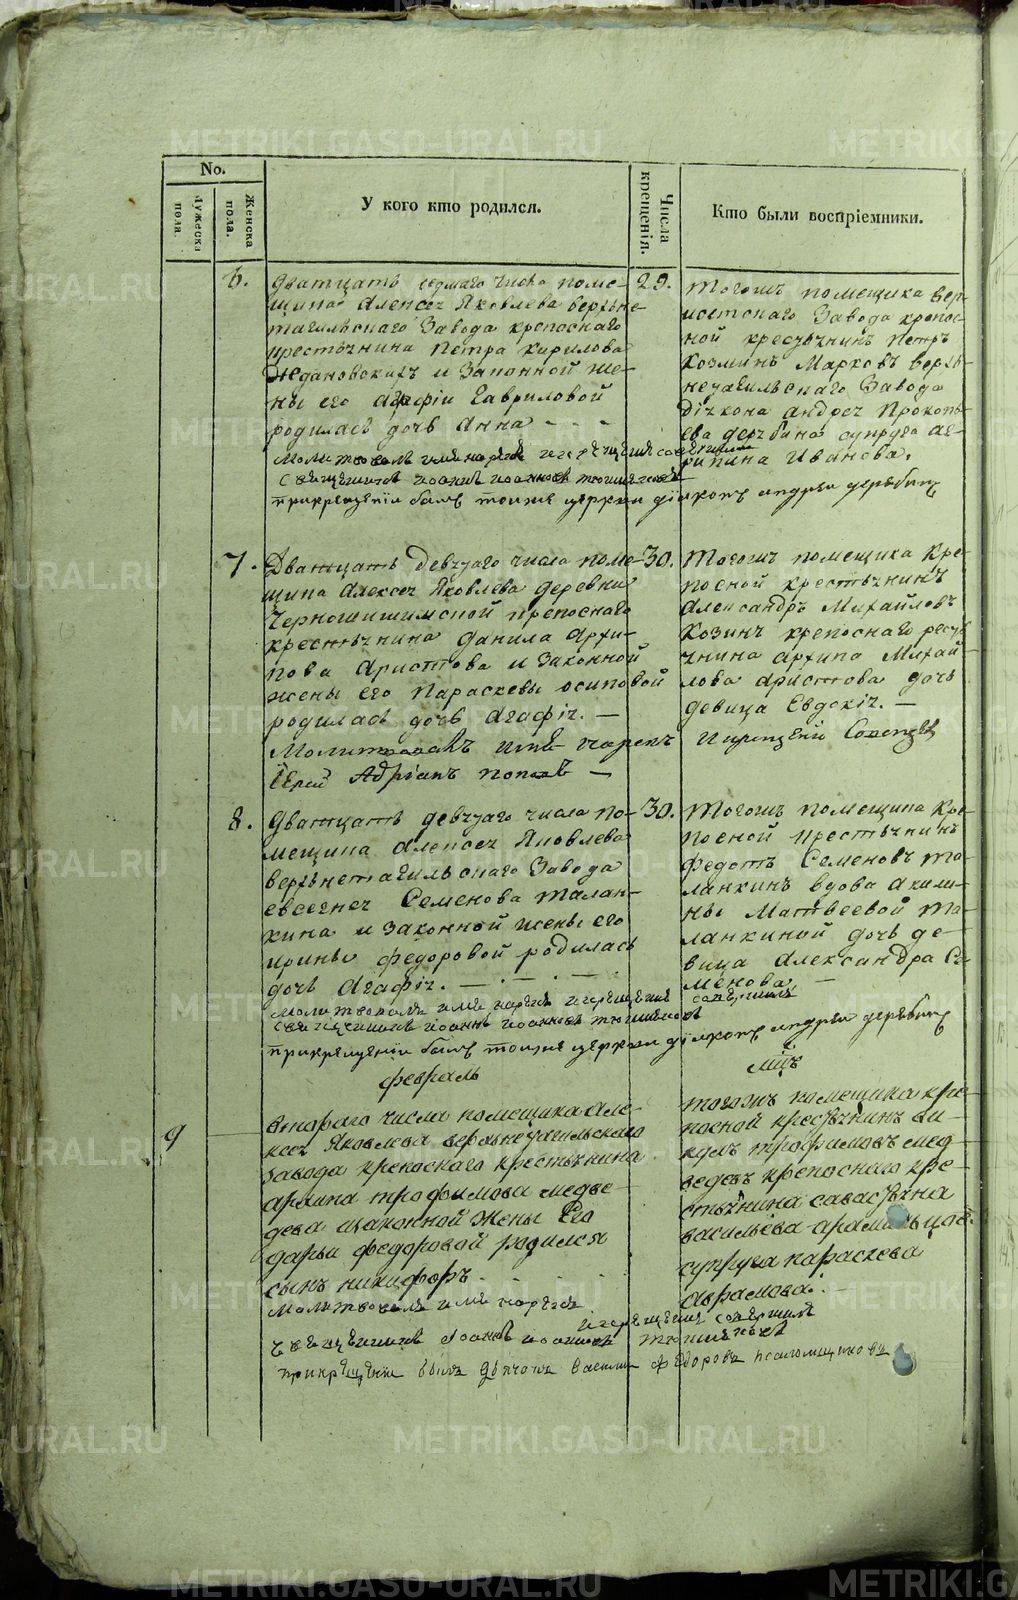 METRIKI.GASO-URAL.RU
No.
Мужеска пола.
Женска пола.
У кого кто родился.
Числа крещенія.
Кто были воспріемники.
6.
Дватцать седмаго числа поме-
щика Алексея Яковлева верхне-
тагильскаго Завода крепоснаго
крестьянина Петра Кирилова
Ждановскихъ и Законной же-
ны его Агафіи Гавриловой
родилась дочь Анна
молитвовалъ имя нарекъ и крещение совершилъ
священникъ Иоаннъ Иоанновъ
при крещении былъ тоя же церкви діяконъ Андрей Дерябинъ
29.
Тогожъ помещика вер-
исетскаго Завода крепос-
ной крестьянинъ Петръ
Козминъ Марковъ верх-
нетагильскаго Завода
діякона Андрея Прокопь-
ева Дерябина супруга Аг-
рипина Иванова.
7.
Дватцать девятаго числа поме-
щика Алексея Яковлева деревни
Черношишимской крепоснаго
крестьянина Данила Архи-
пова Аристова и Законной
жены его Параскевы Осиповой
родилась дочь Агафія. —
Молитвовалъ имя нарекъ и крещеніе Совершилъ
Іерей Адріанъ Поповъ —
30.
Тогожъ помещика Кре-
посной крестьянинъ
Александръ Михайловъ
Козинъ крепоснаго кресть
янина Архипа Михай-
лова Аристова дочь
девица Евдокія. —
8.
Дватцать девятаго числа по-
мещика Алексея Яковлева
верхнетагильскаго Завода
Евсегнея Семенова Талан-
кина и Законной жены его
Ирины Федоровой родилась
дочь Агафія. —
молитвовалъ имя нарекъ и крещение совершилъ
священникъ Иоаннъ Иоанновъ
при крещении былъ тоя же церкви діяконъ Андрей Дерябинъ
30.
Тогожъ помещика Кре-
посной крестьянинъ
Федотъ Семеновъ Та-
ланкинъ вдова Акили-
ны Матвеевой Та-
ланкиной дочь де-
вица Александра Се-
менова —
февраль
мцъ
9
втораго числа помещика Але-
ксея Яковлева верхнетагильскаго
Завода крепоснаго крестьянина
Архипа Трофимова Медве-
дева и законной жены Его
Дарьи Федоровой родился
сынъ Никифоръ.
молитвовалъ имя нарекъ
и крещение совершилъ
священникъ Иоаннъ Иоанновъ
при крещении былъ дьячокъ Василий Федоровъ Псаломщиковъ
тогожъ помещика кре-
посной крестьянинъ
Трофимовъ мед-
ведевъ крепоснаго кре-
стьянина Савастьяна
Васильева Арамильцов.
супруга Параскева
Аврамова.